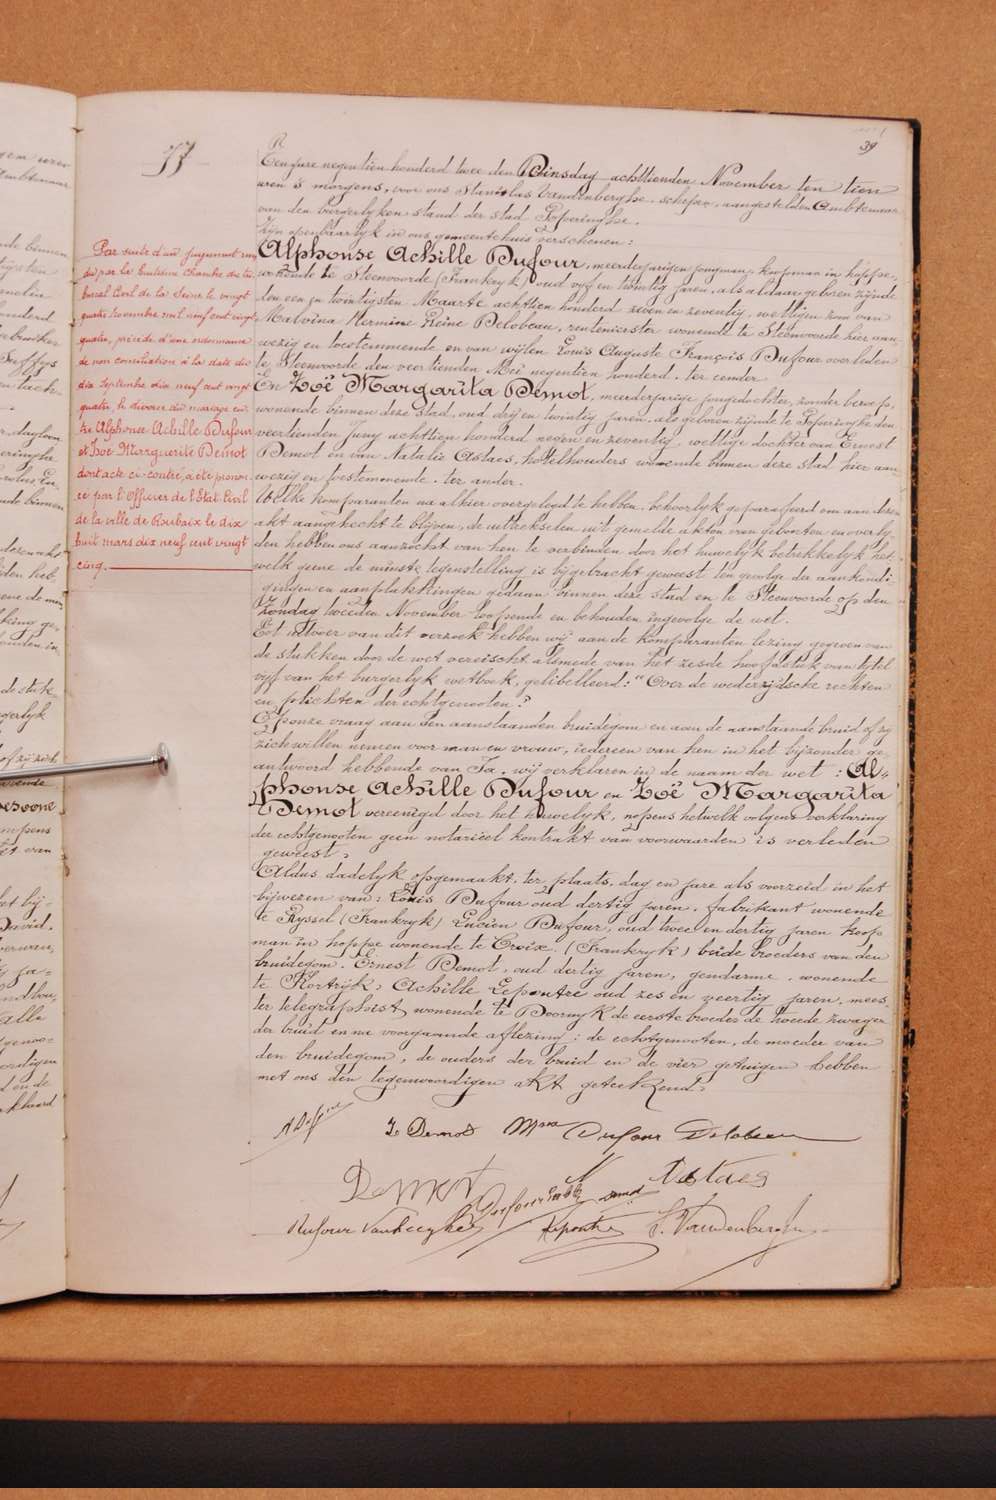 39
77
Een jare negentien honderd twee den Dinsdag achttienden November ten tien
uren 's morgens, voor ons Stanislas Vandenberghe, schepen, aangestelden Ambtenaar
van den burgerlyken stand der stad Poperinghe.
Zyn openbaarlyk in ons gemeentehuis verschenen:
Alphonse Achille Dufour, meerderjarigen jongman, koopman in hoppe,
wonende te Steenvoorde (Frankryk) oud vyf en twintig jaren, als aldaar geboren zynde
den een en twintigsten Maarte achttien honderd zeven en zeventig, wettigen zoon van
Malvina Hermine Reine Delobeau, rentenierster wonende te Steenvoorde hier aan
wezig en toestemmende en van wylen Louis Auguste François Dufour overleden
te Steenvoorde den veertienden Mei negentien honderd. ter eender
En Zoë Margarita Demot, meerderjarige jongedochter, zonder beroep,
wonende binnen deze stad, oud dry en twintig jaren, als geboren zynde te Poperinghe den
veertienden Juny achttien honderd negen en zeventig, wettige dochter van Ernest
Demot en van Natalie Astaes, hotelhouders wonende binnen deze stad hier aan
wezig en toestemmende. ter ander.
Welke komparanten na alhier overgelegd te hebben, behoorlyk geparafeerd om aan dezen
akt aangehecht te blyven, de uittreksels uit gemelde akten van geboorten en overly
den hebben ons aanzocht van hen te verbinden door het huwelyk betrekkelyk het
welk geene de minste tegenstelling is bygebracht geweest ten gevolge der aankondi
gingen en aanplakkingen gedaan binnen deze stad en te Steenvoorde op den
Zondag tweeden November loopende en behouden ingevolge de wet.
Tot uitvoer van dit verzoek hebben wy aan de komparanten lezing gegeven van
de stukken door de wet vereischt alsmede van het zesde hoofdstuk van tytel
vyf van het burgerlyk wetboek, gelibelleerd: "Over de wederzijdsche rechten
en plichten der echtgenooten."
Op onze vraag aan den aanstaanden bruidegom en aan de aanstaande bruid of zy
zich willen nemen voor man en vrouw, iedereen van hen in het byzonder ge
antwoord hebbende van Ja, wy verklaren in de naam der wet: Al-
phonse Achille Dufour en Zoë Margarita
Demot vereenigd door het huwelyk, nopens hetwelk volgens verklaring
der echtgenooten geen notariëel kontrakt van voorwaarden is verleden
geweest.
Aldus dadelyk opgemaakt, ter plaats, dag en jare als voorzeid in het
bijwezen van: Louis Dufour oud dertig jaren, fabrikant wonende
te Ryssel (Frankryk) Lucien Dufour, oud twee en dertig jaren koop
man in hoppe wonende te Croix (Frankryk) beide broeders van den
bruidegom. Ernest Demot, oud dertig jaren, gendarme, wonende
te Kortrijk, Achille Lepoutre oud zes en veertig jaren, mees
ter telegraphist, wonende te Doornyk de eerste broeder de tweede zwager
der bruid en na voorgaande aflezing: de echtgenooten, de moeder van
den bruidegom, de ouders der bruid en de vier getuigen hebben
met ons den tegenwoordigen akt geteekend.
Par suite d'un jugement ren
du par la huitième Chambre du tri
bunal Civil de la Seine le vingt
quatre novembre mil neuf cent vingt
quatre, précédé d'une ordonnance
de non conciliation à la date du
dix septembre dix neuf cent vingt
quatre, le divorce du mariage en
tre Alphonse Achille Dufour
et Zoë Marguerite Demot
dont acte ci-contre, a été pronon
cé par l'Officier de l'Etat Civil
de la ville de Roubaix le dix
huit mars dix neuf cent vingt
cinq.
A Dufour Z. Demot Mme Dufour Delobeau
Demot Demot N Astaes
Dufour Vanheeghe Lepoutre S. Vandenberghe